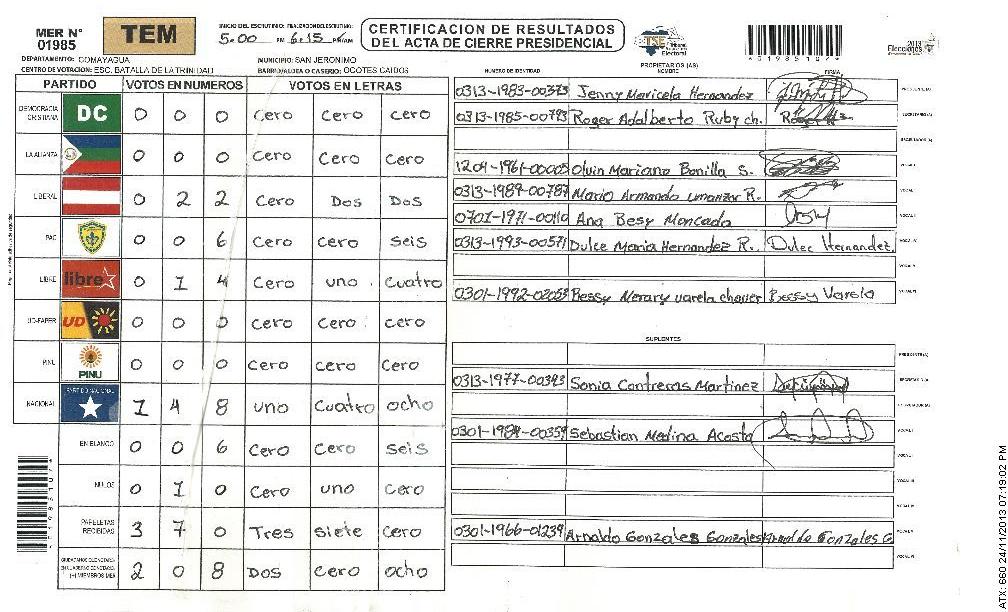 MER N° 01985
TEM
INICIO DEL ESCRUTINIO: FINALIZACION DEL ESCRUTINIO:
5:00 PM 6:15 PM/AM
CERTIFICACION DE RESULTADOS
DEL ACTA DE CIERRE PRESIDENCIAL
TSE Tribunal Supremo Electoral
*01985107*
2013 Elecciones
DEPARTAMENTO: COMAYAGUA MUNICIPIO: SAN JERONIMO
CENTRO DE VOTACION: ESC. BATALLA DE LA TRINIDAD BARRIO/ALDEA O CASERIO: OCOTES CAIDOS
PARTIDO VOTOS EN NUMEROS VOTOS EN LETRAS
DEMOCRACIA CRISTIANA DC 0 0 0 Cero Cero Cero
LA ALIANZA 0 0 0 Cero Cero Cero
LIBERAL 0 2 2 Cero Dos Dos
PAC 0 0 6 Cero Cero seis
LIBRE libre 0 1 4 Cero uno Cuatro
UD-FAPER UD 0 0 0 Cero Cero cero
PINU PINU 0 0 0 Cero cero Cero
NACIONAL PARTIDO NACIONAL 1 4 8 uno Cuatro ocho
EN BLANCO 0 0 6 Cero Cero seis
NULOS 0 1 0 Cero uno cero
PAPELETAS RECIBIDAS 3 7 0 Tres siete cero
(+) MIEMBROS MER 2 0 8 Dos cero ocho
NUMERO DE IDENTIDAD PROPIETARIOS (AS) NOMBRE FIRMA
0313-1983-00373 Jenny Maricela Hernandez PRESIDENTE(A)
0313-1985-00793 Roger Adalberto Ruby ch. SECRETARIO(A)
ESCRUTADOR(A)
1201-1961-00005 Olvin Mariano Bonilla S. VOCAL I
0313-1989-00787 Mario Armando umanzor R. VOCAL
0701-1971-00110 Ana Besy Moncada VOCAL
0313-1993-00571 Dulce Maria Hernandez R. Dulce Hernandez. VOCAL IV
VOCAL V
0301-1992-02053 Bessy Nerary varela chaver Bessy Varela VOCAL VI
SUPLENTES
PRESIDENTE(A)
0313-1977-00393 Sonia Contreras Martinez SECRETARIO(A)
ESCRUTADOR(A)
0301-1984-00359 Sebastian Medina Acosta VOCAL I
VOCAL II
VOCAL III
VOCAL IV
0301-1966-01239 Arnaldo Gonzales Gonzales Arnaldo Gonzales G VOCAL V
VOCAL VI
*01985107*
ATX: 660 24/11/2013 07:19:02 PM